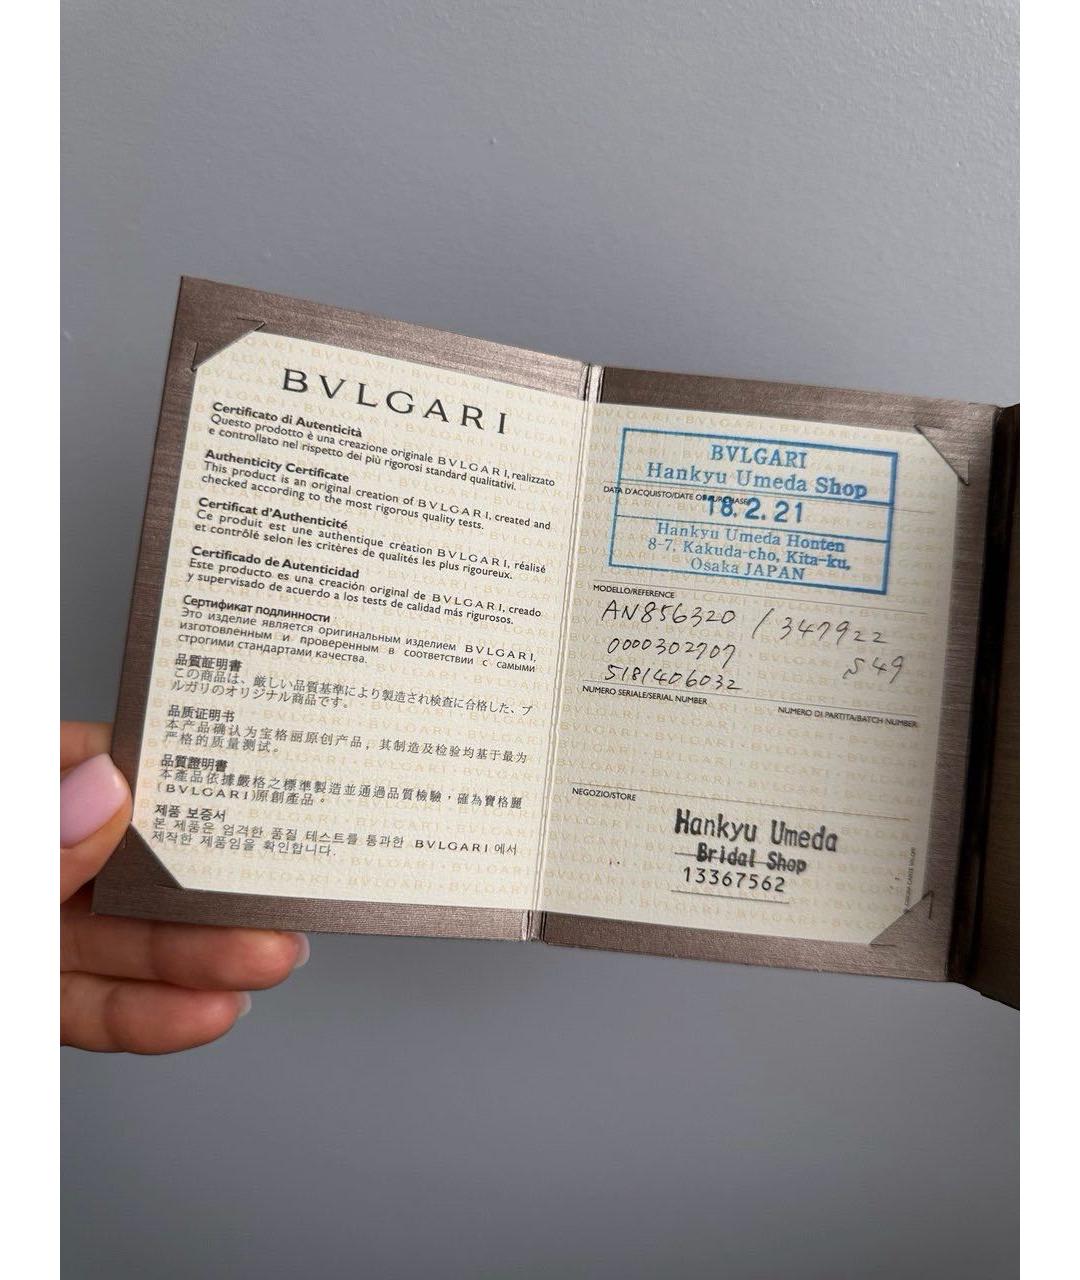 BVLGARI
Certificato di Autenticità
Questo prodotto è una creazione originale BVLGARI, realizzato
e controllato nel rispetto dei più rigorosi standard qualitativi.
Authenticity Certificate
This product is an original creation of BVLGARI, created and
checked according to the most rigorous quality tests.
Certificat d'Authenticité
Ce produit est une authentique création BVLGARI, réalisé
et contrôlé selon les critères de qualités les plus rigoureux.
Certificado de Autenticidad
Este producto es una creación original de BVLGARI, creado
y supervisado de acuerdo a los tests de calidad más rigurosos.
Сертификат подлинности
Это изделие является оригинальным изделием BVLGARI,
изготовленным и проверенным в соответствии с самыми
строгими стандартами качества.
品質証明書
この商品は、厳しい品質基準により製造され検査に合格した、ブ
ルガリのオリジナル商品です。
品质证明书
本产品确认为宝格丽原创产品，其制造及检验均基于最为
严格的质量测试。
品質證明書
本產品依據嚴格之標準製造並通過品質檢驗，確為寶格麗
(BVLGARI)原創產品。
제품 보증서
본 제품은 엄격한 품질 테스트를 통과한 BVLGARI 에서
제작한 제품임을 확인합니다.
BVLGARI
Hankyu Umeda Shop
DATA D'ACQUISTO/DATE OF PURCHASE
18.2.21
Hankyu Umeda Honten
8-7, Kakuda-cho, Kita-ku,
Osaka JAPAN
MODELLO/REFERENCE
AN856320 / 347922
0000302707
549
5181406032
NUMERO SERIALE/SERIAL NUMBER
NUMERO DI PARTITA/BATCH NUMBER
NEGOZIO/STORE
Hankyu Umeda
Bridal Shop
13367562